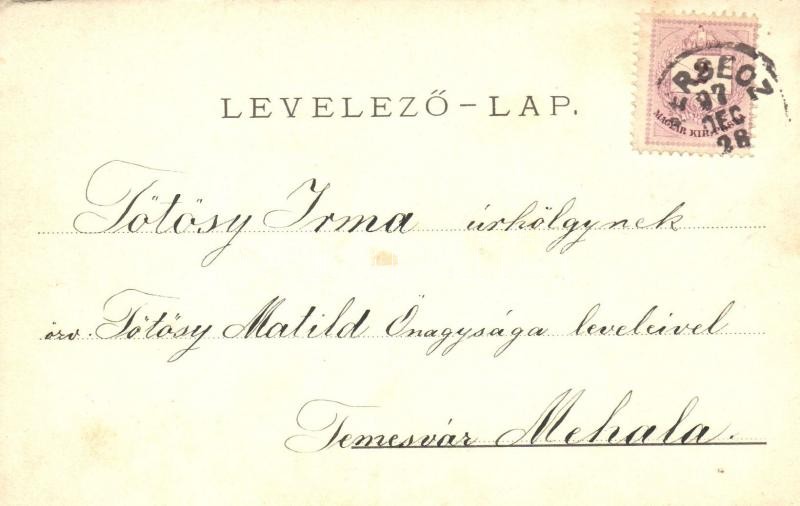 LEVELEZŐ-LAP.
2
MAGYAR KIR.
97
DEC
28
Tőtősy Irma úrhölgynek
özv. Tőtősy Matild Őnagysága leveleivel
Temesvár Mehala.